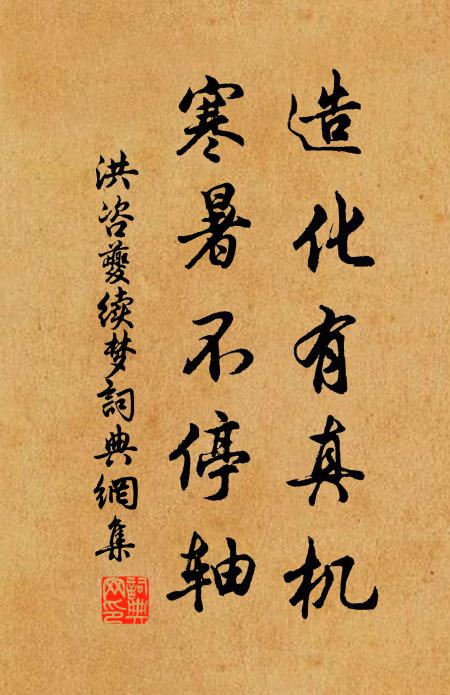 造化有真机
寒暑不停轴
洪咨夔续梦词典網集
詞典網印